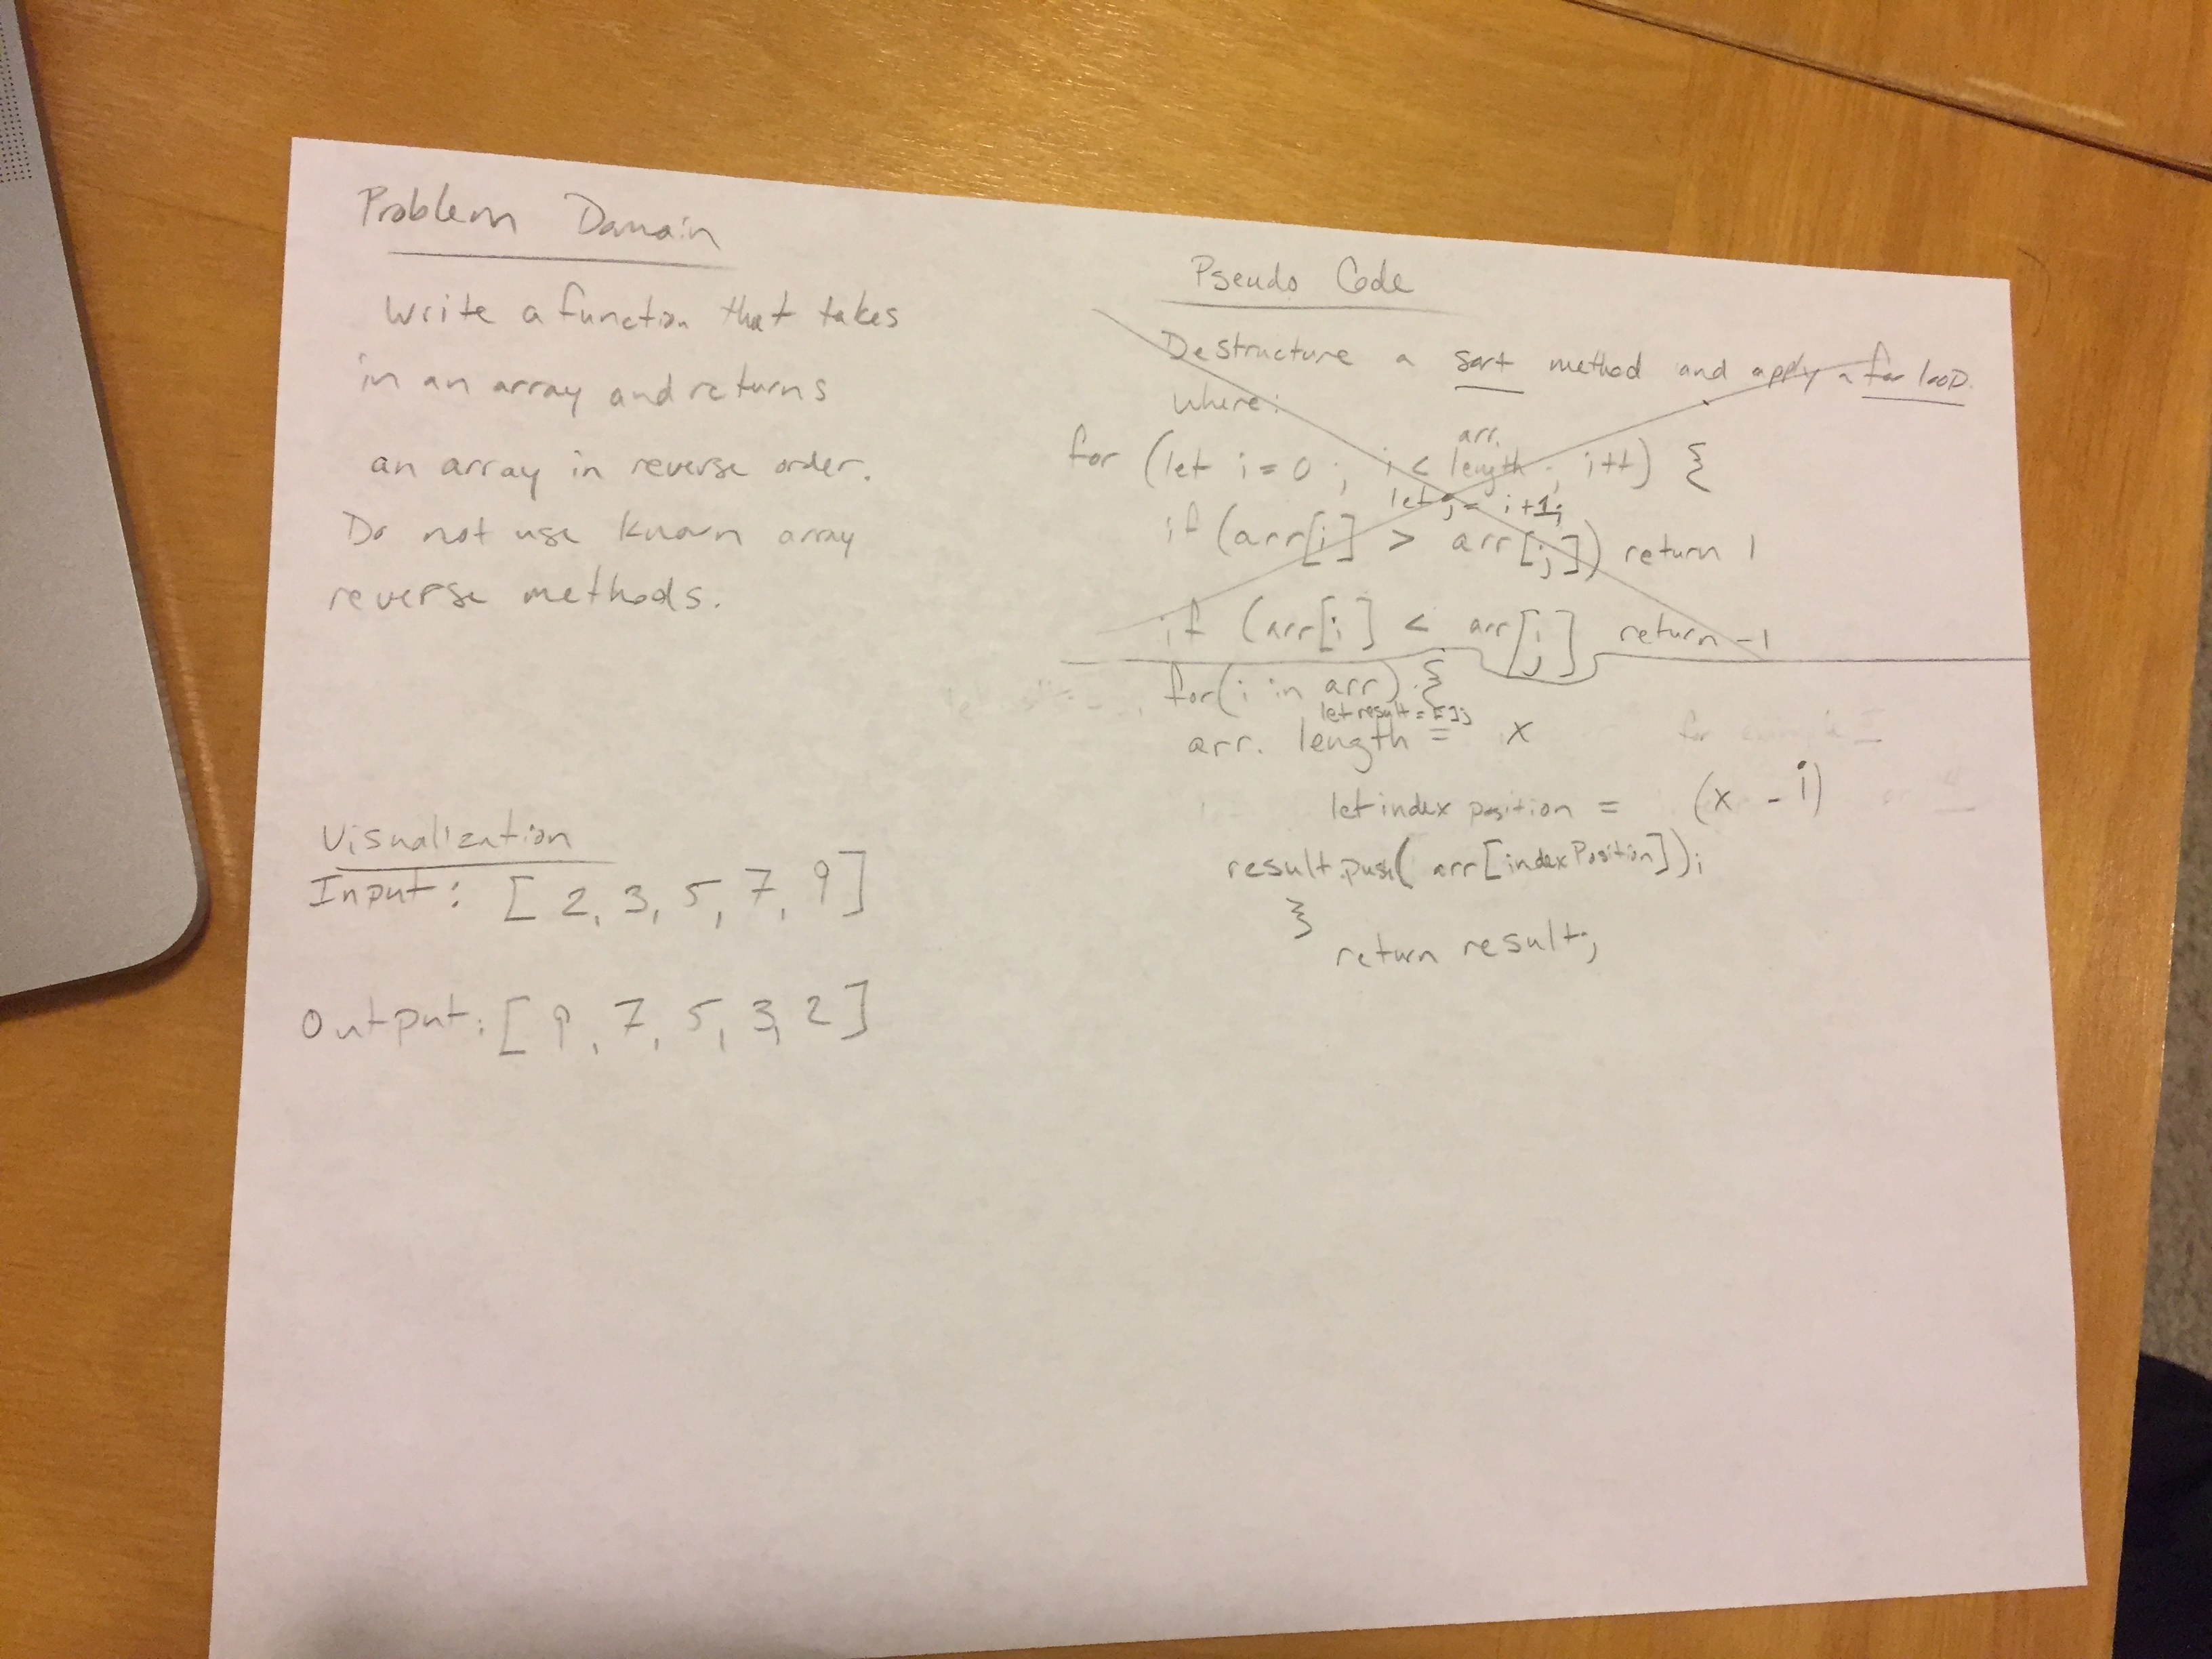 Problem Domain
Write a function that takes
in an array and returns
an array in reverse order.
Do not use known array
reverse methods.
Visualization
Input: [ 2, 3, 5, 7, 9 ]
Output: [ 9, 7, 5, 3, 2 ]
Pseudo Code
Destructure a sort method and apply a for loop.
where:
arr.
for (let i = 0 ; i < length ; i++) {
let j = i+1;
if (arr[i] > arr[j]) return 1
if (arr[i] < arr[j] return -1
for(i in arr) {
let result = [];
arr. length = x
let index position = (x - i)
result.push( arr[indexPosition]);
}
return result;